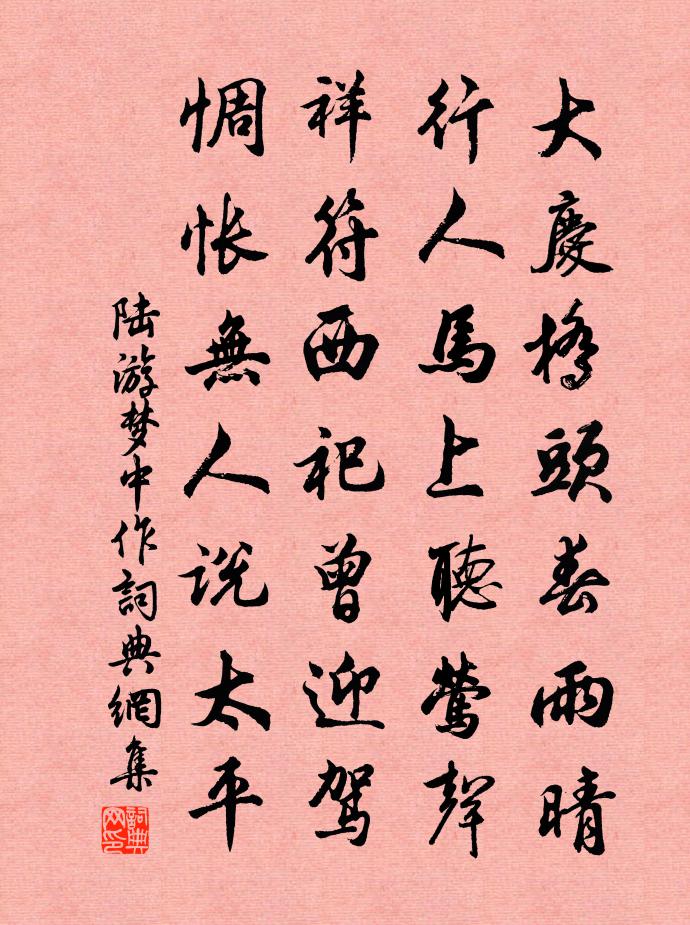 大慶橋頭春雨晴
行人馬上聽鶯聲
祥符西祀曾迎駕
惆怅無人説太平
陆游梦中作詞典網集
詞典网印